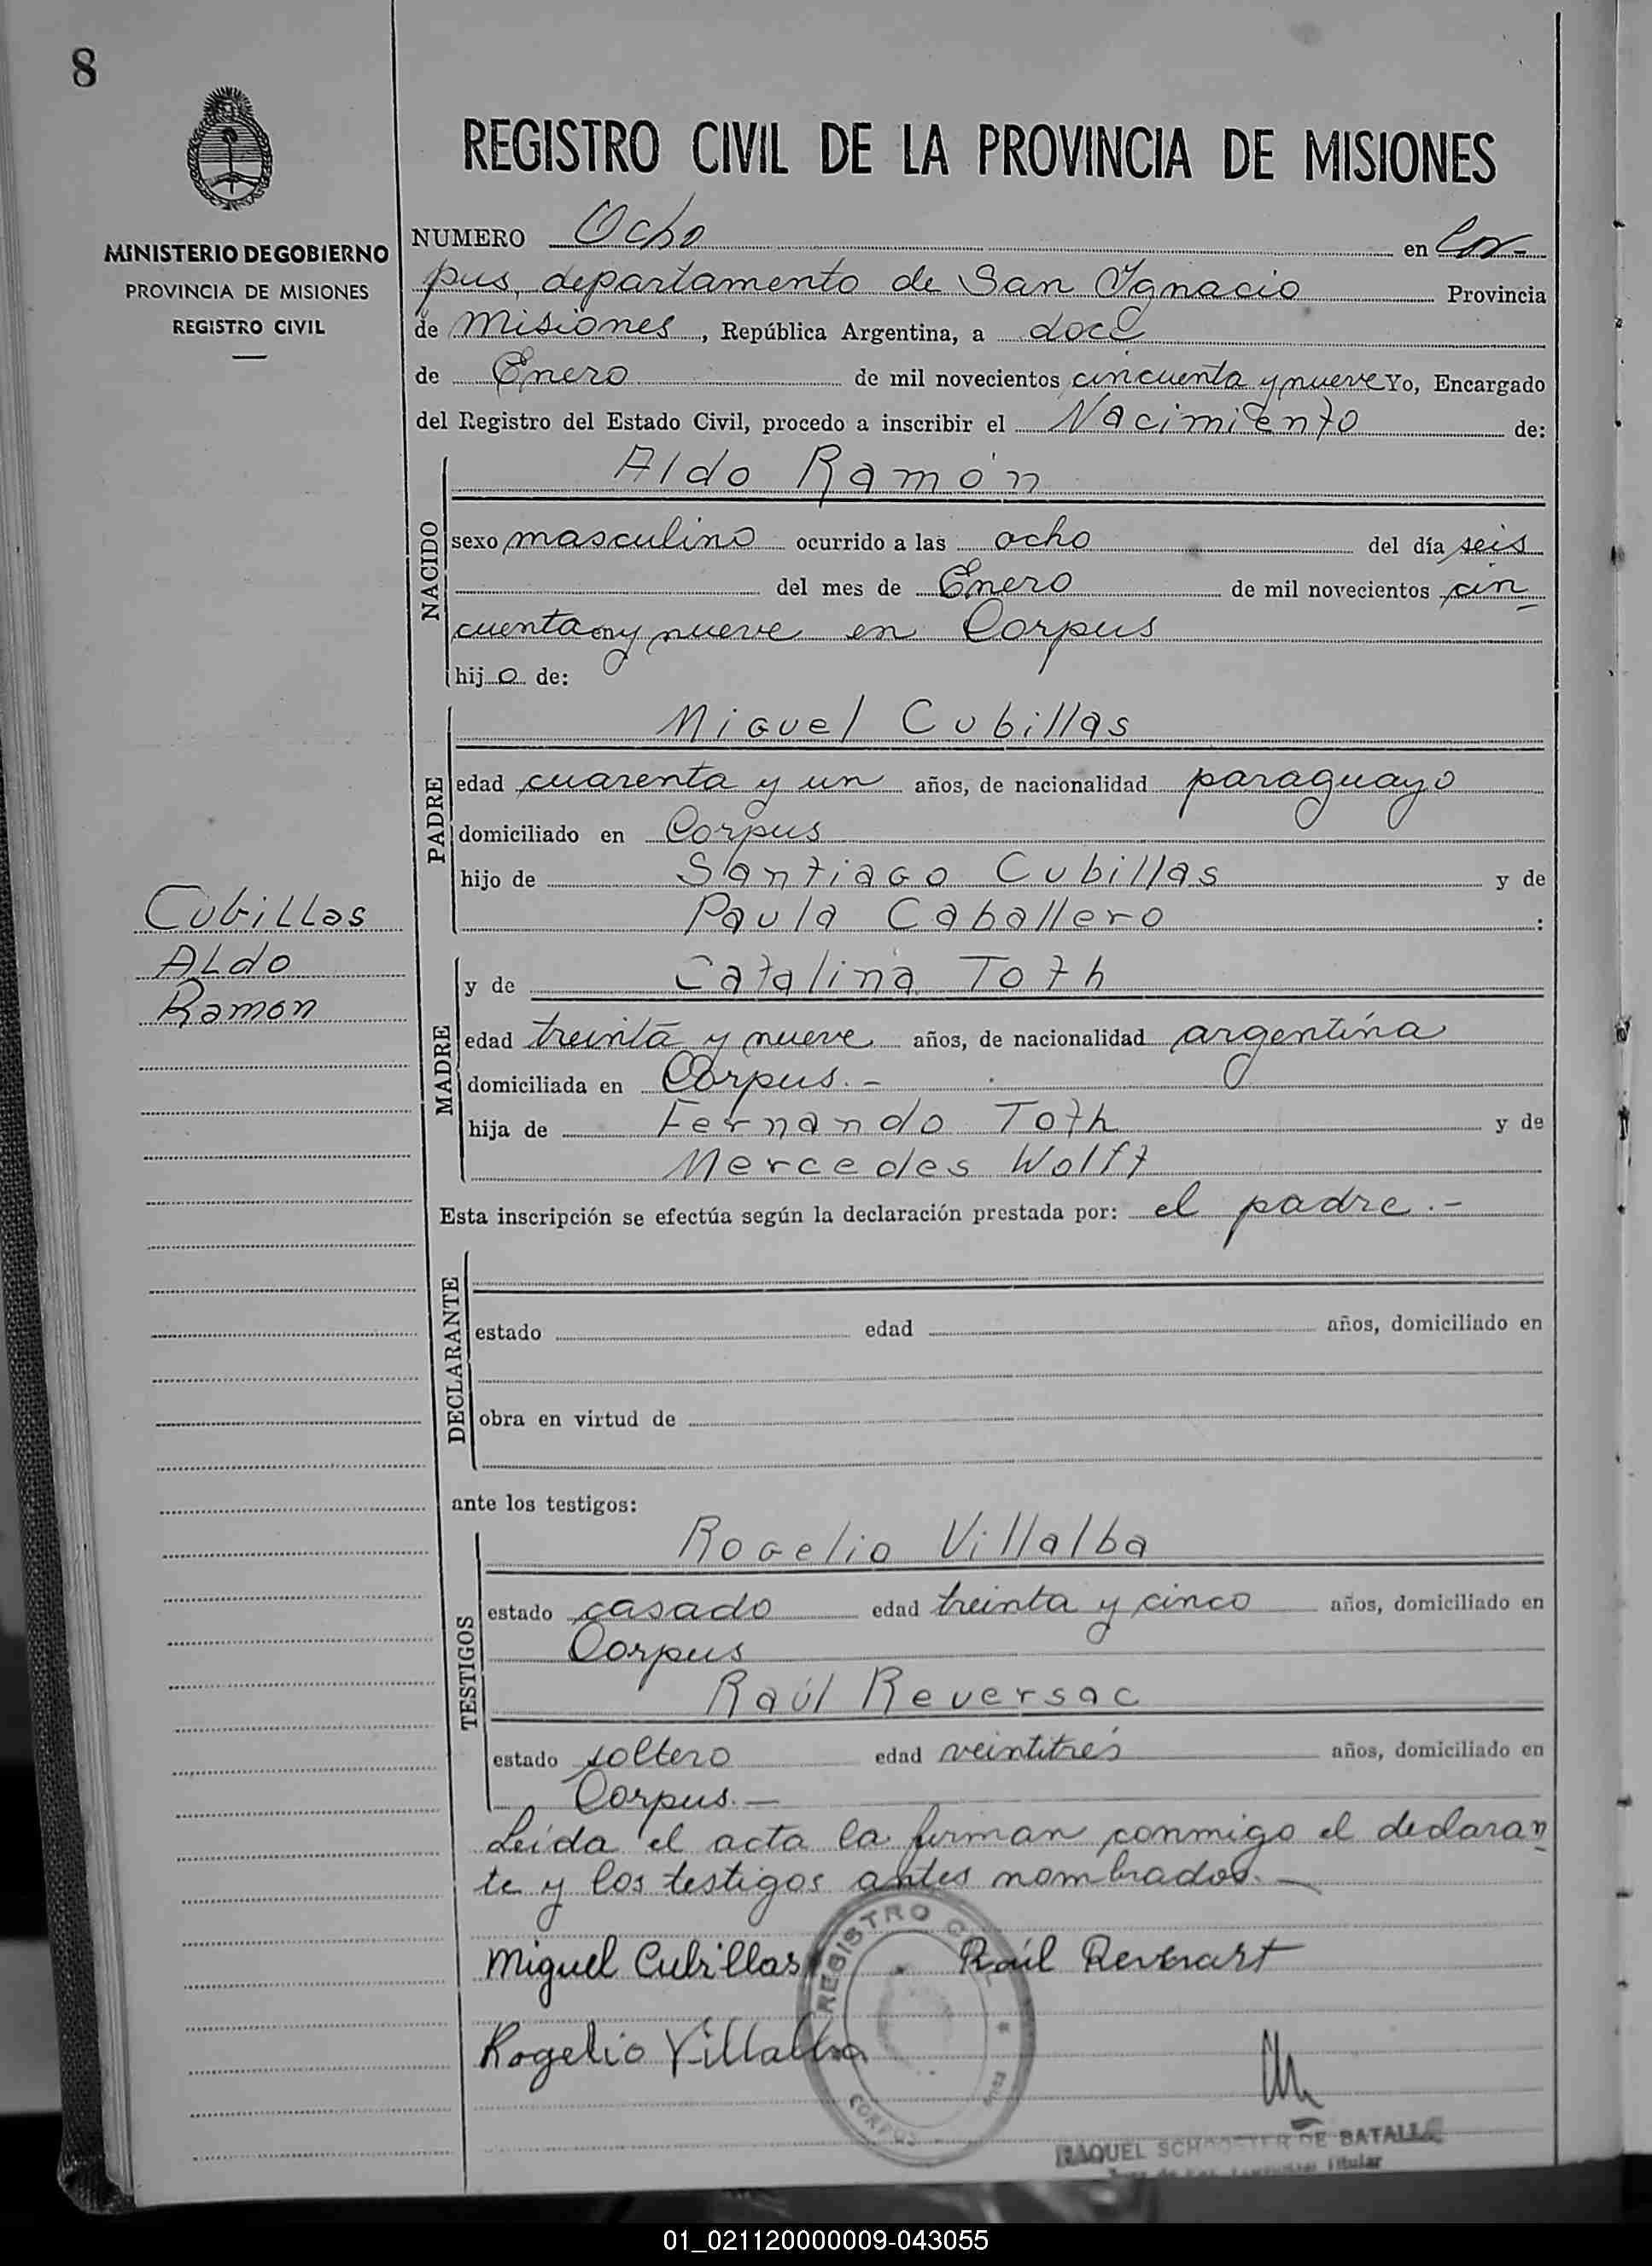 8
MINISTERIO DE GOBIERNO
PROVINCIA DE MISIONES
REGISTRO CIVIL
REGISTRO CIVIL DE LA PROVINCIA DE MISIONES
NUMERO Ocho en Cor-
pus, departamento de San Ignacio Provincia
de Misiones, República Argentina, a doce
de Enero de mil novecientos cincuenta y nueve Yo, Encargado
del Registro del Estado Civil, procedo a inscribir el Nacimiento de:
NACIDO
Aldo Ramón
sexo masculino ocurrido a las ocho del día seis
del mes de Enero de mil novecientos cin
cuenta en y nueve en Corpus
hijo de:
PADRE
Miguel Cubillas
edad cuarenta y un años, de nacionalidad paraguayo
domiciliado en Corpus
hijo de Santiago Cubillas y de
Paula Caballero :
Cubillas
Aldo
Ramon
MADRE
y de Catalina Toth
edad treinta y nueve años, de nacionalidad argentina
domiciliada en Corpus.-
hija de Fernando Toth y de
Mercedes Wolft
Esta inscripción se efectúa según la declaración prestada por: el padre.-
DECLARANTE
estado edad años, domiciliado en
obra en virtud de
ante los testigos:
TESTIGOS
Rogelio Villalba
estado casado edad treinta y cinco años, domiciliado en
Corpus
Raúl Reversac
estado soltero edad veintitrés años, domiciliado en
Corpus.-
Leida el acta la firman conmigo el declaran
te y los testigos antes nombrados.-
Miguel Cubillas Raúl
Rogelio Villalba
REGISTRO
CORPUS
RAQUEL DE BATALLA
Titular
01_021120000009-043055